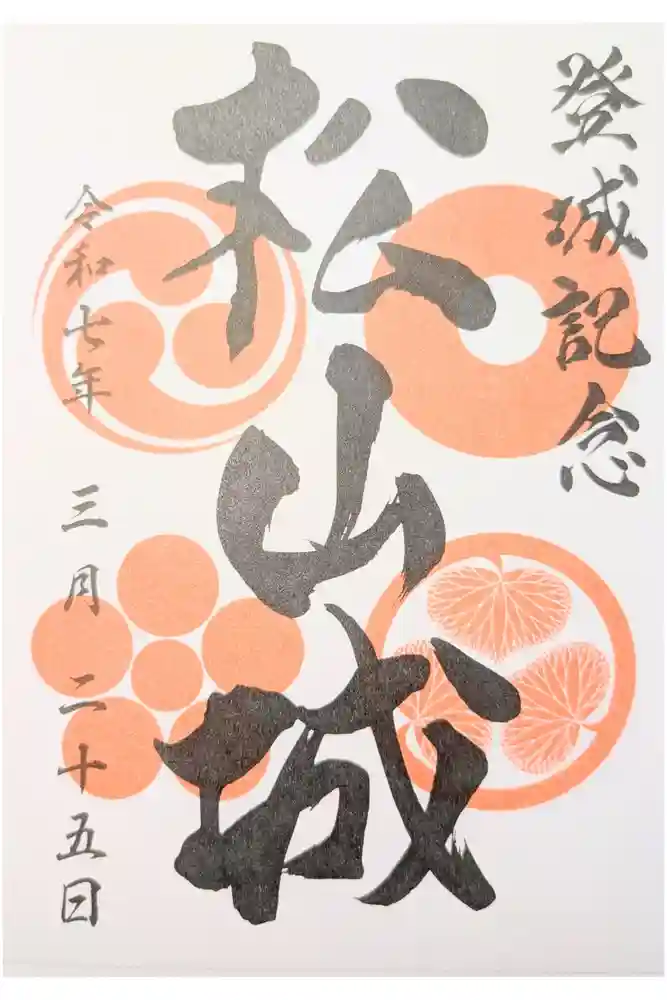 登城記念
松山城
令和七年
三月二十五日